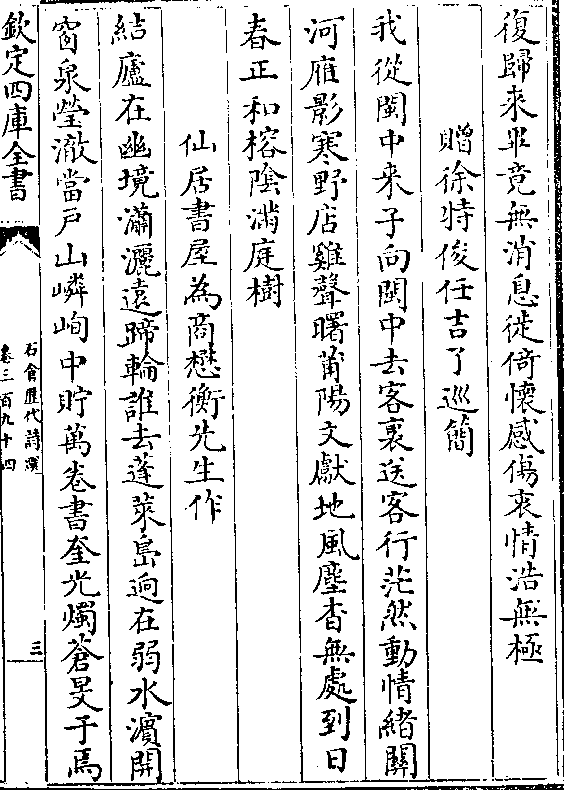 復歸来畢竟無消息徙倚懷感傷衷情浩無極
贈徐特俊任吉了巡簡
我從閩中来子向閩中去客裏送客行茫然動情緒關
河雁影寒野店雞聲曙莆陽文獻地風塵杳無處到日
春正和榕陰滿庭樹
仙居書屋為商懋衡先生作
結廬在幽境瀟灑遠蹄輪誰去蓬萊島迥在弱水濵開
窗泉瑩澈當戸山嶙峋中貯萬卷書奎光燭蒼旻于焉
欽定四庫全書
石倉歷代詩選
卷三百九十四
三